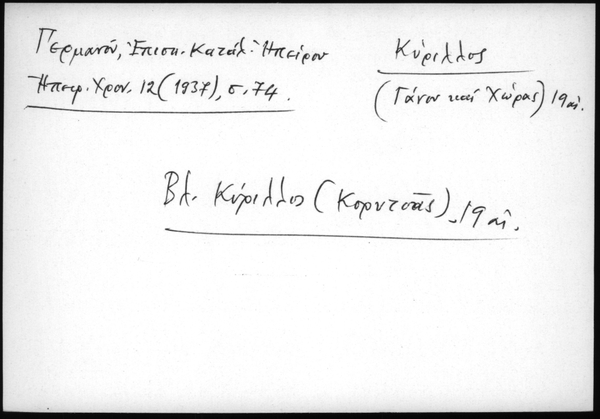 Γερμανού, Ἐπισκ. Κατάλ. Ἠπείρου
Ἠπειρ. Χρον. 12 (1937), σ. 74.
Κύριλλος
(Γάνου καί Χώρας) 19 αἰ.
Βλ. Κύριλλος (Κορυτσᾶς), 19 αἰ.